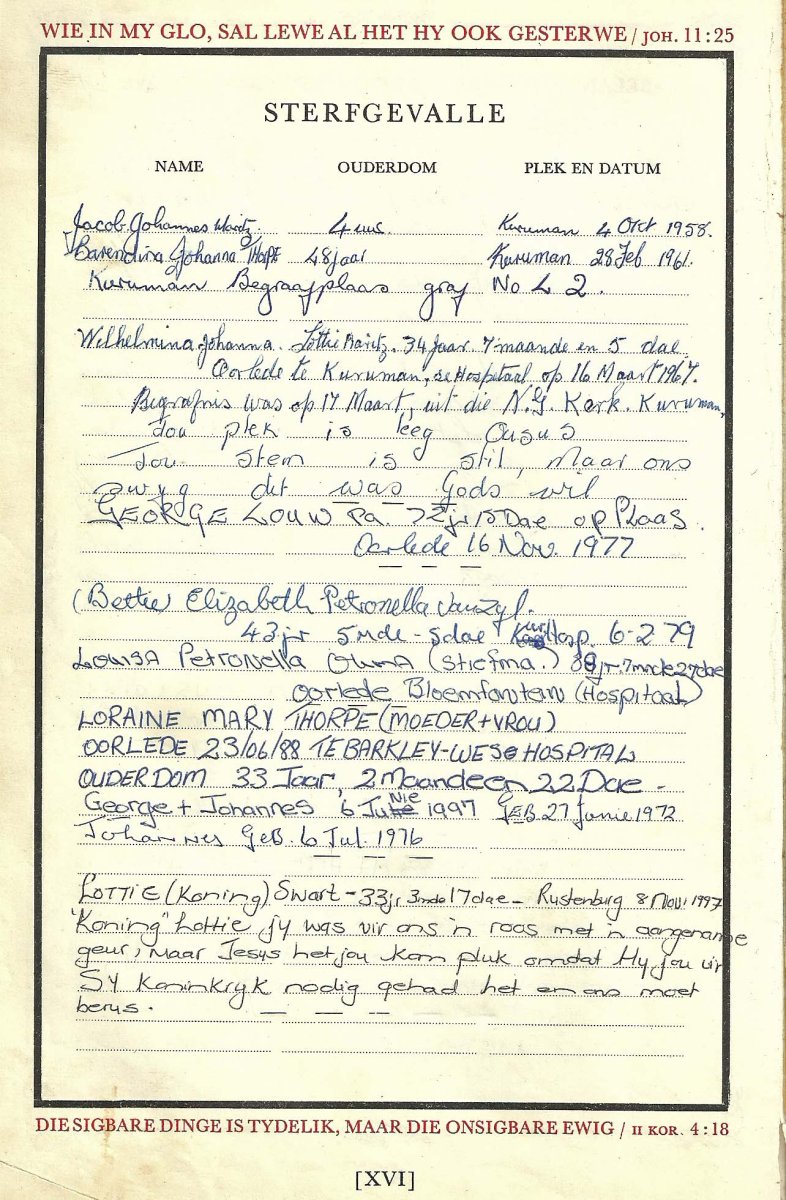 WIE IN MY GLO, SAL LEWE AL HET HY OOK GESTERWE / JOH. 11:25
STERFGEVALLE
NAME OUDERDOM PLEK EN DATUM
Jacob Johannes Maritz. 4 uur. Kuruman 4 Okt 1958.
Barendina Johanna Thorpe 48 jaar Kuruman 28 Feb 1961.
Kuruman Begraafplaas graf No L 2.
Wilhelmina Johanna. Lottie Maritz. 34 Jaar 7 maande en 5 dae
Oorlede te Kuruman, se Hospitaal op 16 Maart 1967.
Begrafnis was op 17 Maart, uit die N.G. Kerk. Kuruman,
Jou plek is leeg Ousus
Jou stem is stil, maar ons
swyg dit was Gods wil
GEORGE LOUW Pa 72 jr 15 Dae op PLAAS.
Oorlede 16 Nov. 1977
(Bettie) Elizabeth Petronella van Zyl.
43 jr 5 mde - 5 dae Hosp. 6-2 79
LOUISA PETRONELLA (Stiefma.) jr. 7 mnde 27 dae
oorlede Bloemfontein (Hospitaal)
LORAINE MARY THORPE (MOEDER + VROU)
OORLEDE 23/06/88 TE BARKLEY-WES HOSPITAAL
OUDERDOM 33 Jaar, 2 Maande en 22 Dae -
George + Johannes 6 Junie 1997 GEB 27 Junie 1972
Johannes GEB. 6 Jul. 1976
LOTTIE (Koning) Swart - 33 jr 3 mde 17 dae - Rustenburg 8 Nov. 1997
"Koning" Lottie jy was vir ons 'n roos met 'n aangename
geur, maar Jesus het jou kom pluk omdat Hy jou vir
SY Koninkryk nodig gehad het en ons moet
berus.
DIE SIGBARE DINGE IS TYDELIK, MAAR DIE ONSIGBARE EWIG / II KOR. 4:18
[XVI]